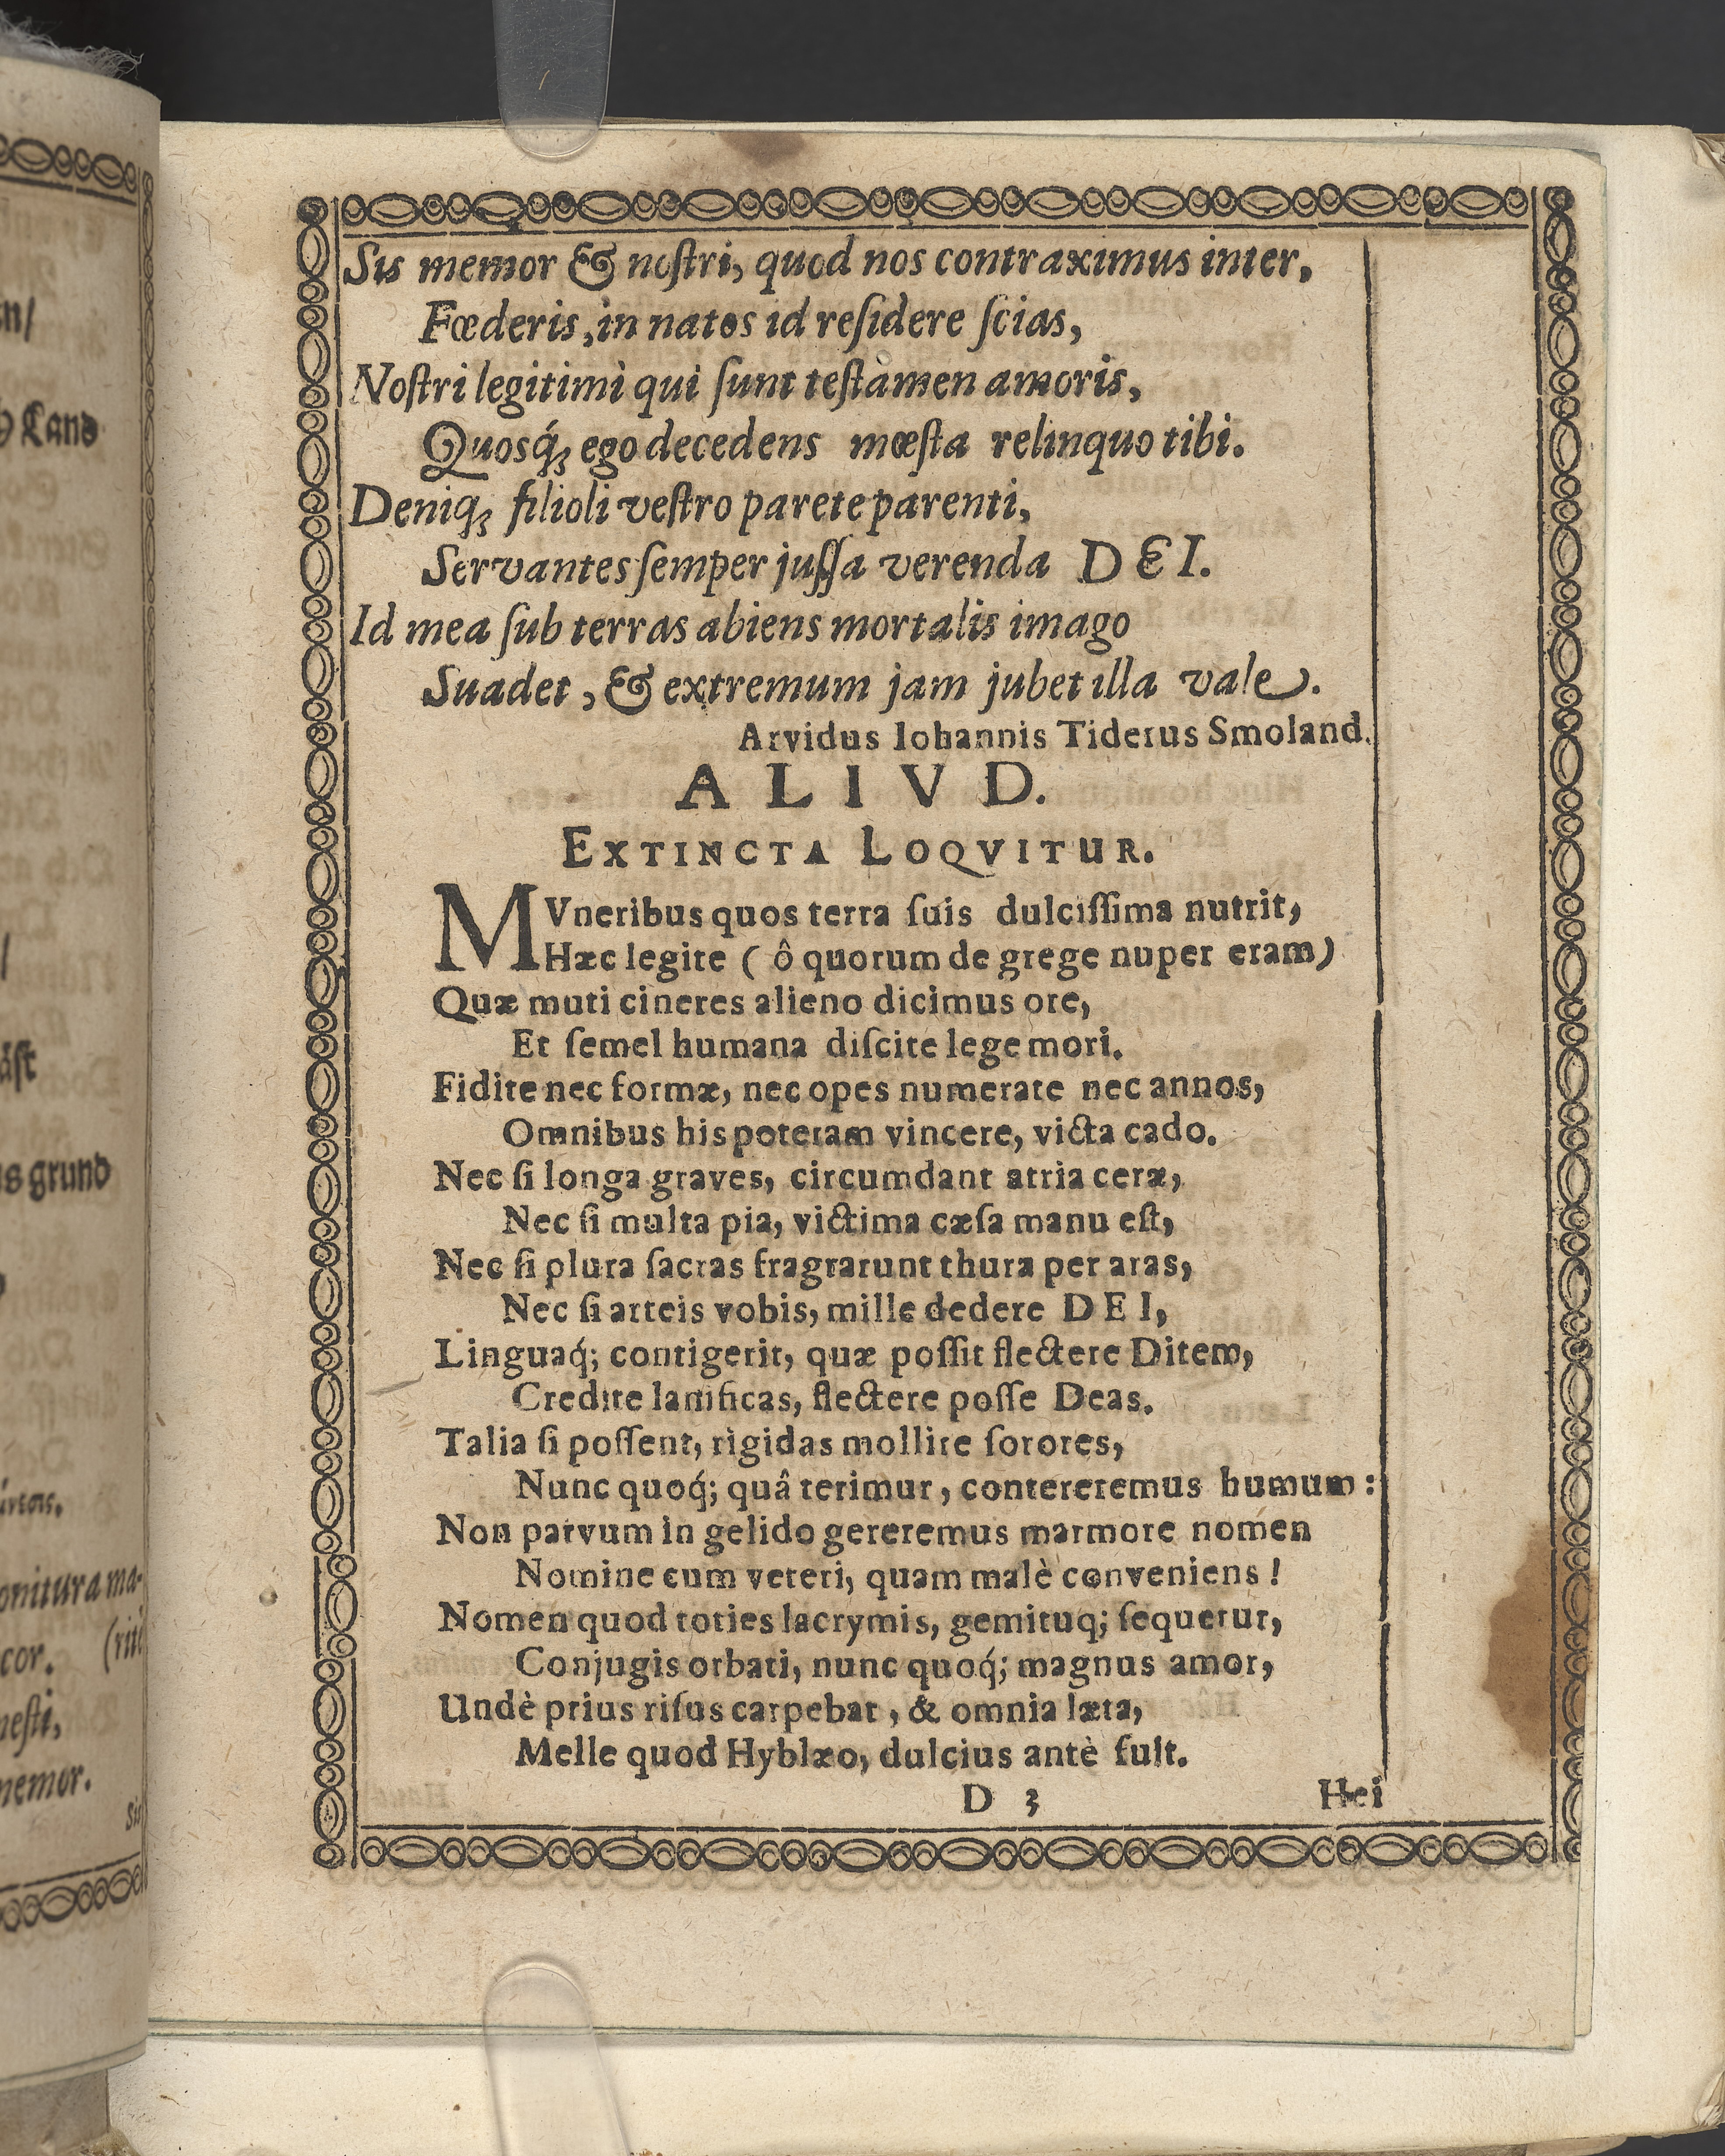 n/
Land
äst
s grund
onitura ma-
cor. (riti
nesti,
nemor.
Sis
Sis memor & noſtri, quod nos contraximus inter,
Fœderis, in natos id reſidere ſcias,
Noſtri legitimi qui ſunt teſtamen amoris,
Quosq́ꝫ ego decedens mœſta relinquo tibi.
Deniqꝫ filioli veſtro parete parenti,
Servantes ſemper juſſa verenda DEI.
Id mea ſub terras abiens mortalis imago
Suadet, & extremum jam jubet illa vale.
Arvidus Iohannis Tiderus Smoland.
ALIVD.
EXTINCTA LOQVITUR.
MVneribus quos terra ſuis dulciſſima nutrit,
Hæc legite ( ô quorum de grege nuper eram)
Quæ muti cineres alieno dicimus ore,
Et ſemel humana diſcite lege mori.
Fidite nec formæ, nec opes numerate nec annos,
Omnibus his poteram vincere, victa cado.
Nec ſi longa graves, circumdant atria ceræ,
Nec ſi multa pia, victima cæſa manu eſt,
Nec ſi plura ſacras fragrarunt thura per aras,
Nec ſi arteis vobis, mille dedere DEI,
Linguaq́; contigerit, quæ poſſit flectere Ditem,
Credite lanificas, flectere poſſe Deas.
Talia ſi poſſent, rigidas mollire ſorores,
Nunc quoq́; quâ terimur, contereremus humum:
Non parvum in gelido gereremus marmore nomen
Nomine cum veteri, quam malè conveniens!
Nomen quod toties lacrymis, gemituq; ſequetur,
Conjugis orbati, nunc quoq́; magnus amor,
Undè prius riſus carpebat, & omnia læta,
Melle quod Hyblæo, dulcius antè fuit.
D 3 Hei